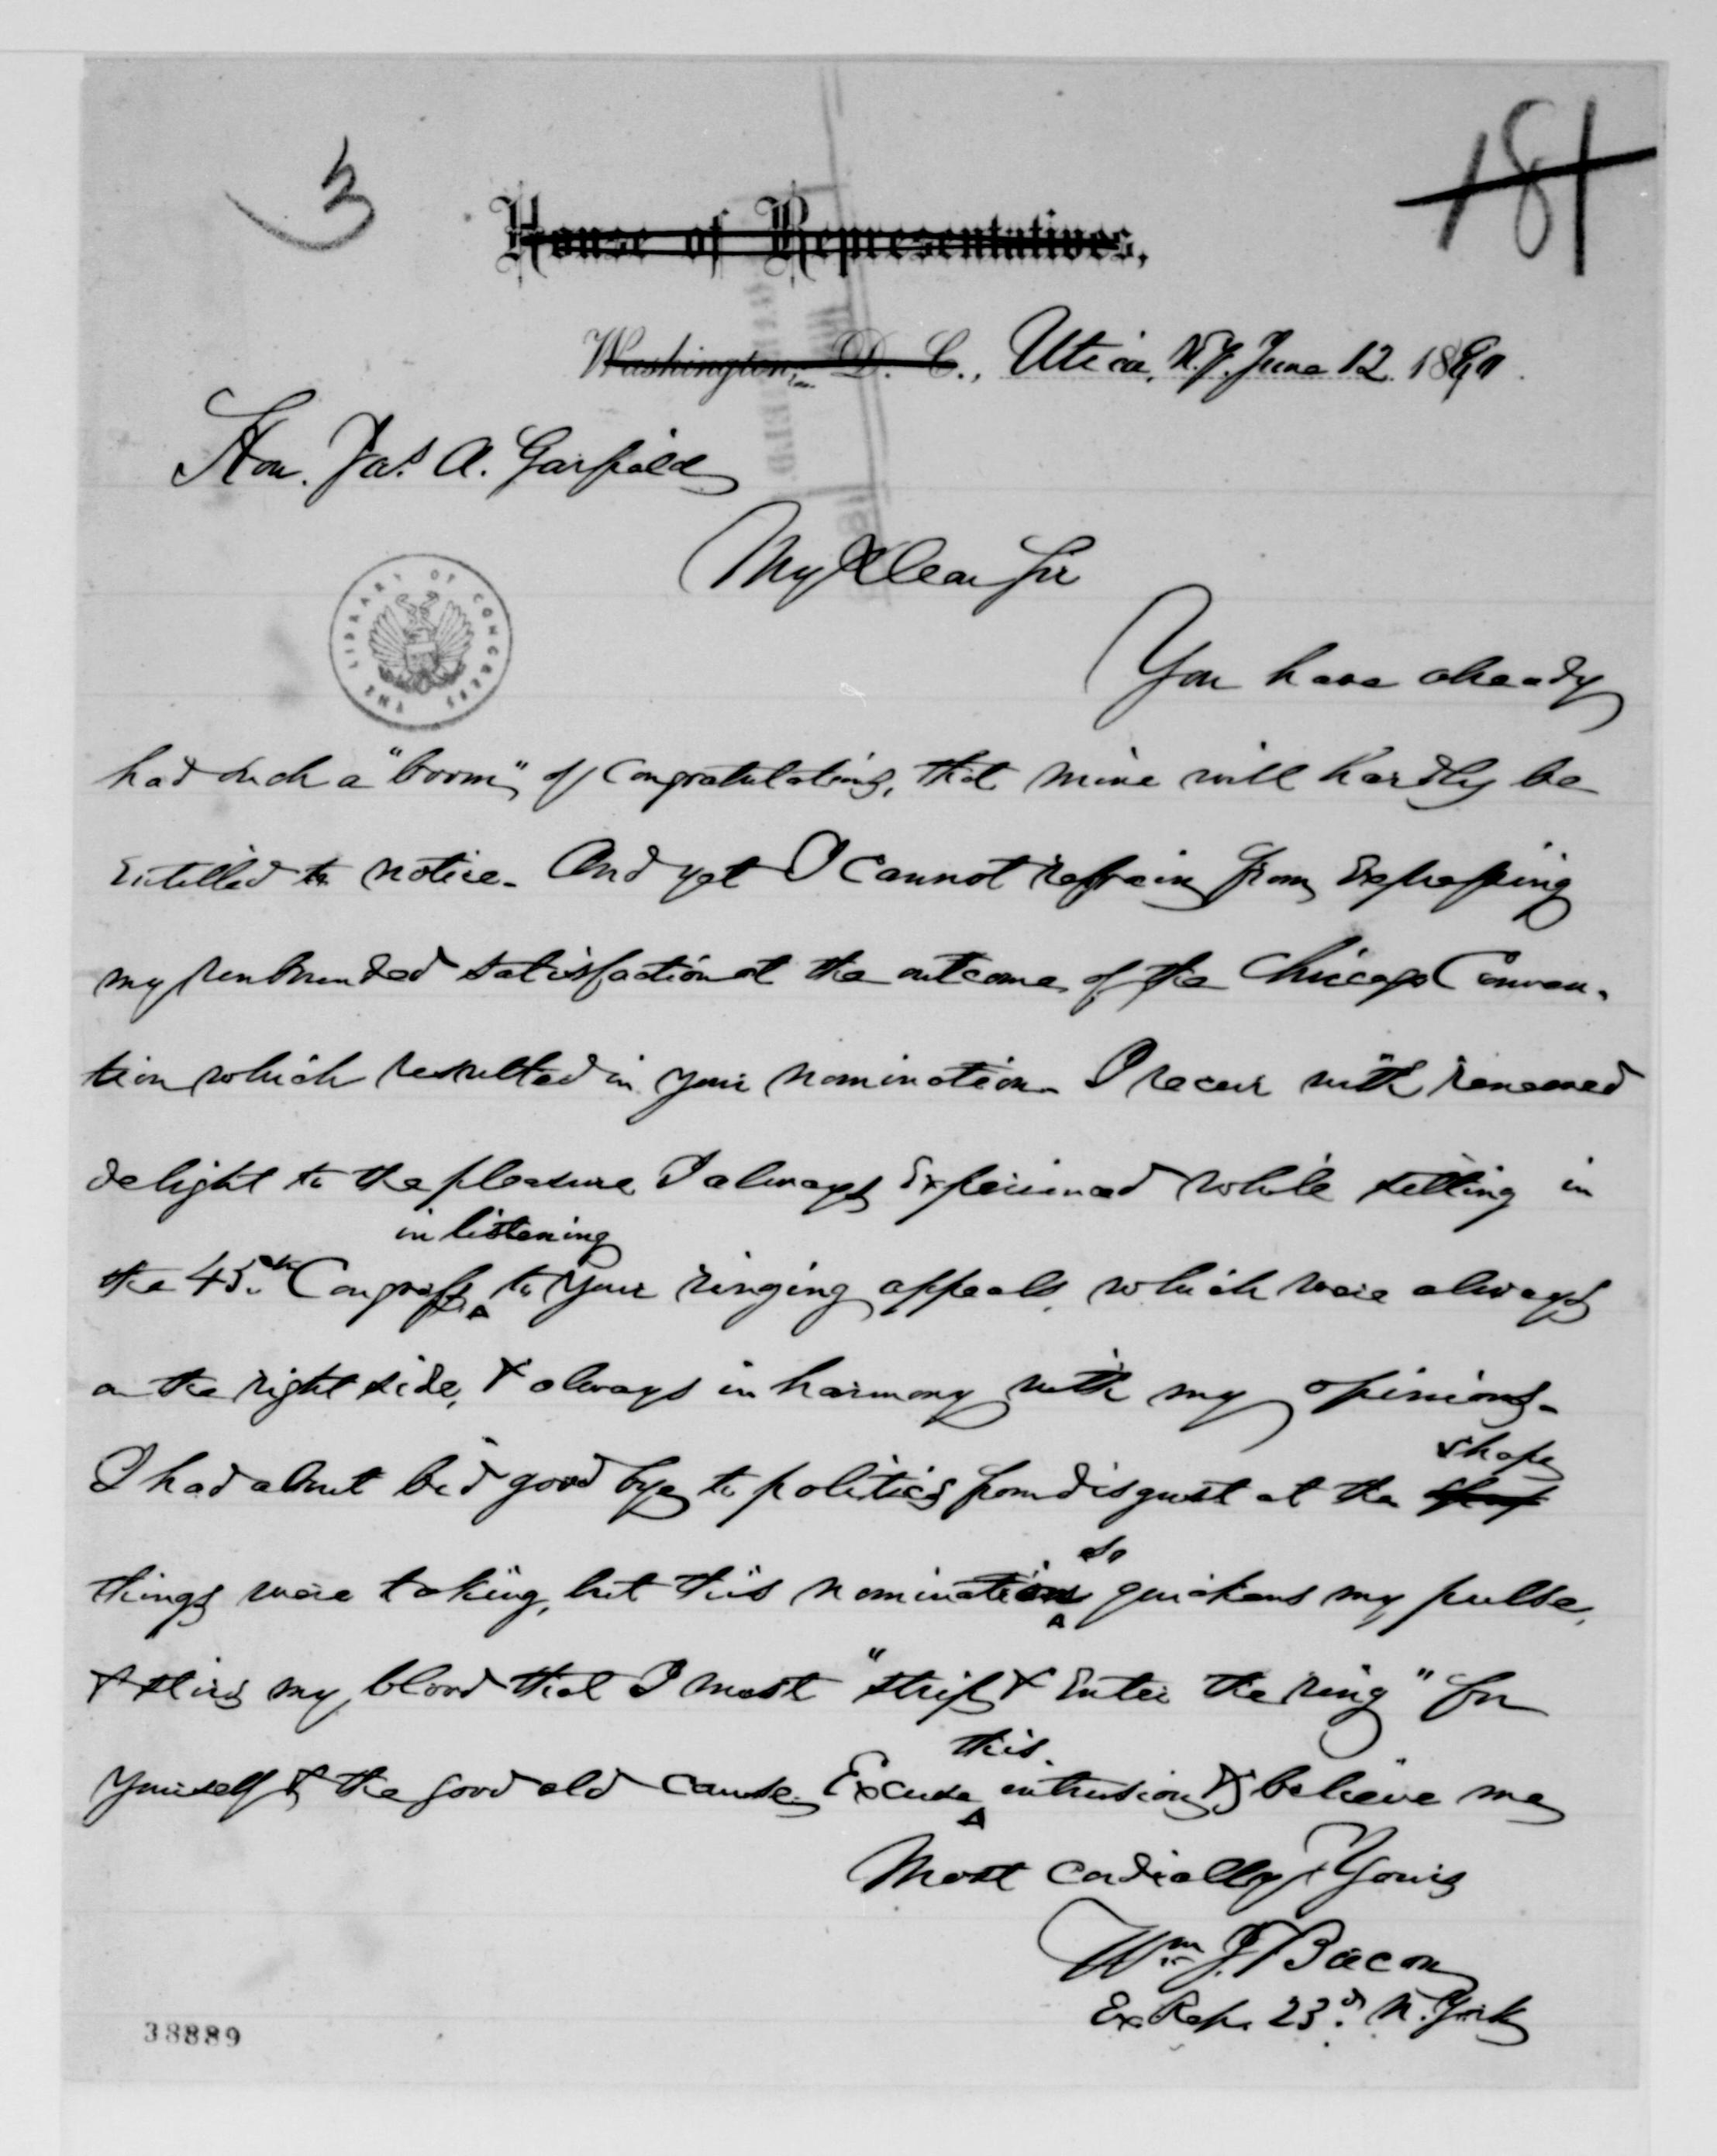 3
181
House of Representatives,
Washington, D. C., Utica, N.Y. June 12. 1880.
Hon. Jas. A. Garfield
My Dear Sir
THE LIBRARY OF CONGRESS
You have already
had such a "boom" of congratulations, that mine will hardly be
entitled to notice. And yet I cannot refrain from expressing
my unbounded satisfaction at the outcome of the Chicago Conven-
tion which resulted in your nomination. I recur with renewed
delight to the pleasure I always experienced while sitting in
in listening
the 45th. Congress, to your ringing appeals, which were always
on the right side, & always in harmony with my opinions.
shape
I had about bid good bye to politics from disgust at the
so
things were taking, but this nomination quickens my pulse,
& stirs my blood that I must "strip & enter the ring" for
this
yourself & the good old cause. Excuse intrusion & believe me
Most cordially Yours
Wm. J. Bacon
Ex Rep. 23d. N. York
38889